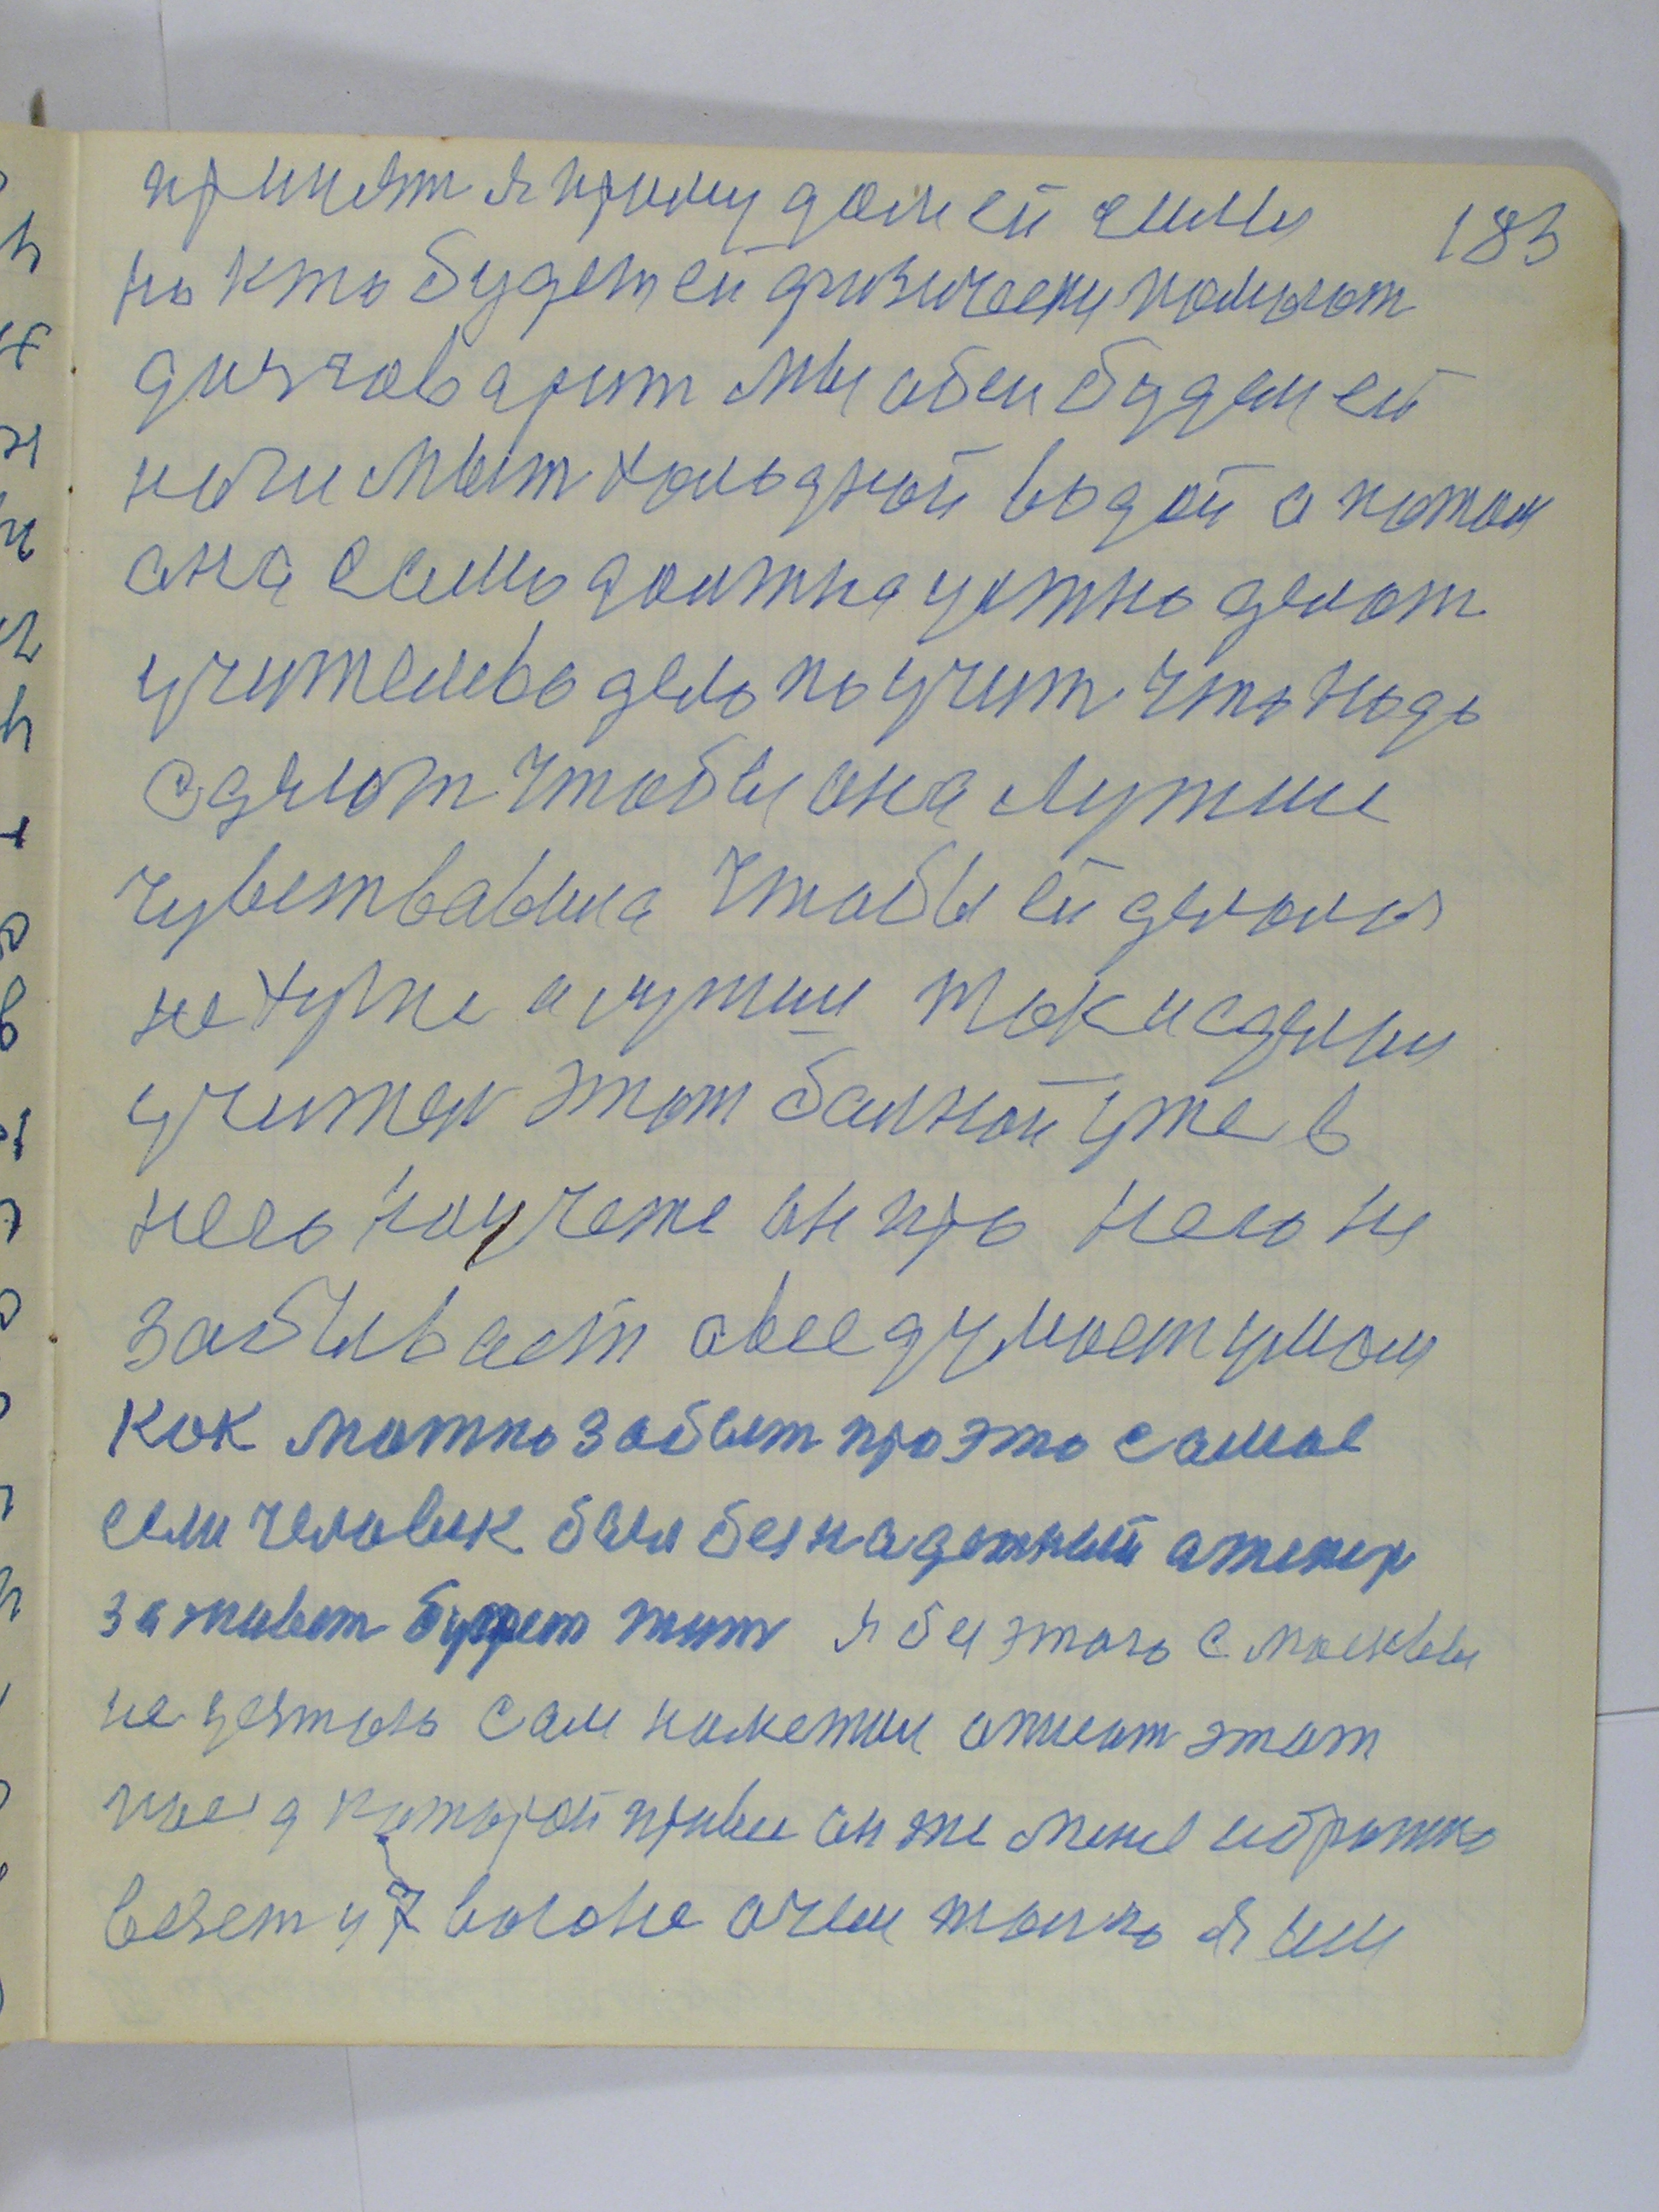 принят я приму дам ей силы 183
но кто будет ей физически помогат
дич говарит мы обеи будем ей
ноги мыт холодной водой а потом
она само должна ужно делат
учителево дело поучит что нодо
сделот чтобы она лутше
чувствавыла чтобы ей делалоя
не хуже а лутши ток и сделы
учител этот балной уже в
него на учете он про него не
забывает авсе думает умом
кок можно забыт про это самое
если человек был безнадежный а тепер
заживет будет жит я без этого с москвы
не уехтоль сам наметил описат этат
поезд каторой привез он же мене и обратно
везет у 7 вогоне очем толко я им